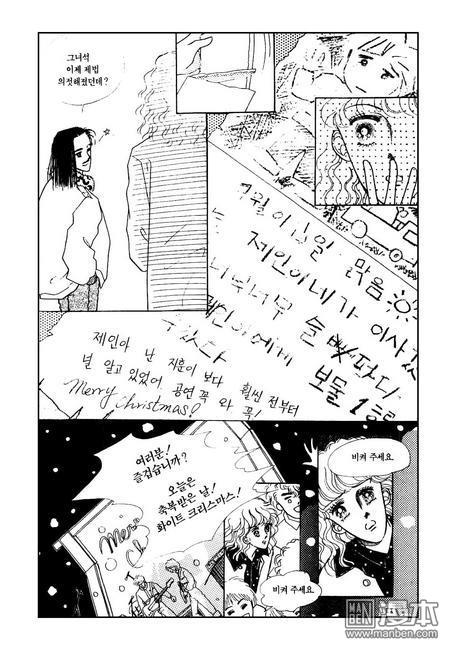 그녀석
이제 제법
의젓해졌던데?
7월 이십일 맑음
제인이네가 이사갔
너무너무 슬 파다
제인이에게 보물 1호를
주었다
제인아 난 지훈이 보다 훨씬 전부터
널 알고 있었어 공연 꼭 와 꼭!
Merry Christmas!
여러분!
즐겁습니까?
오늘은
축복받은 날!
화이트 크리스마스!
Merry
Ch
비켜 주세요.
비켜 주세요.
MAN
BEN
漫本
www.manben.com